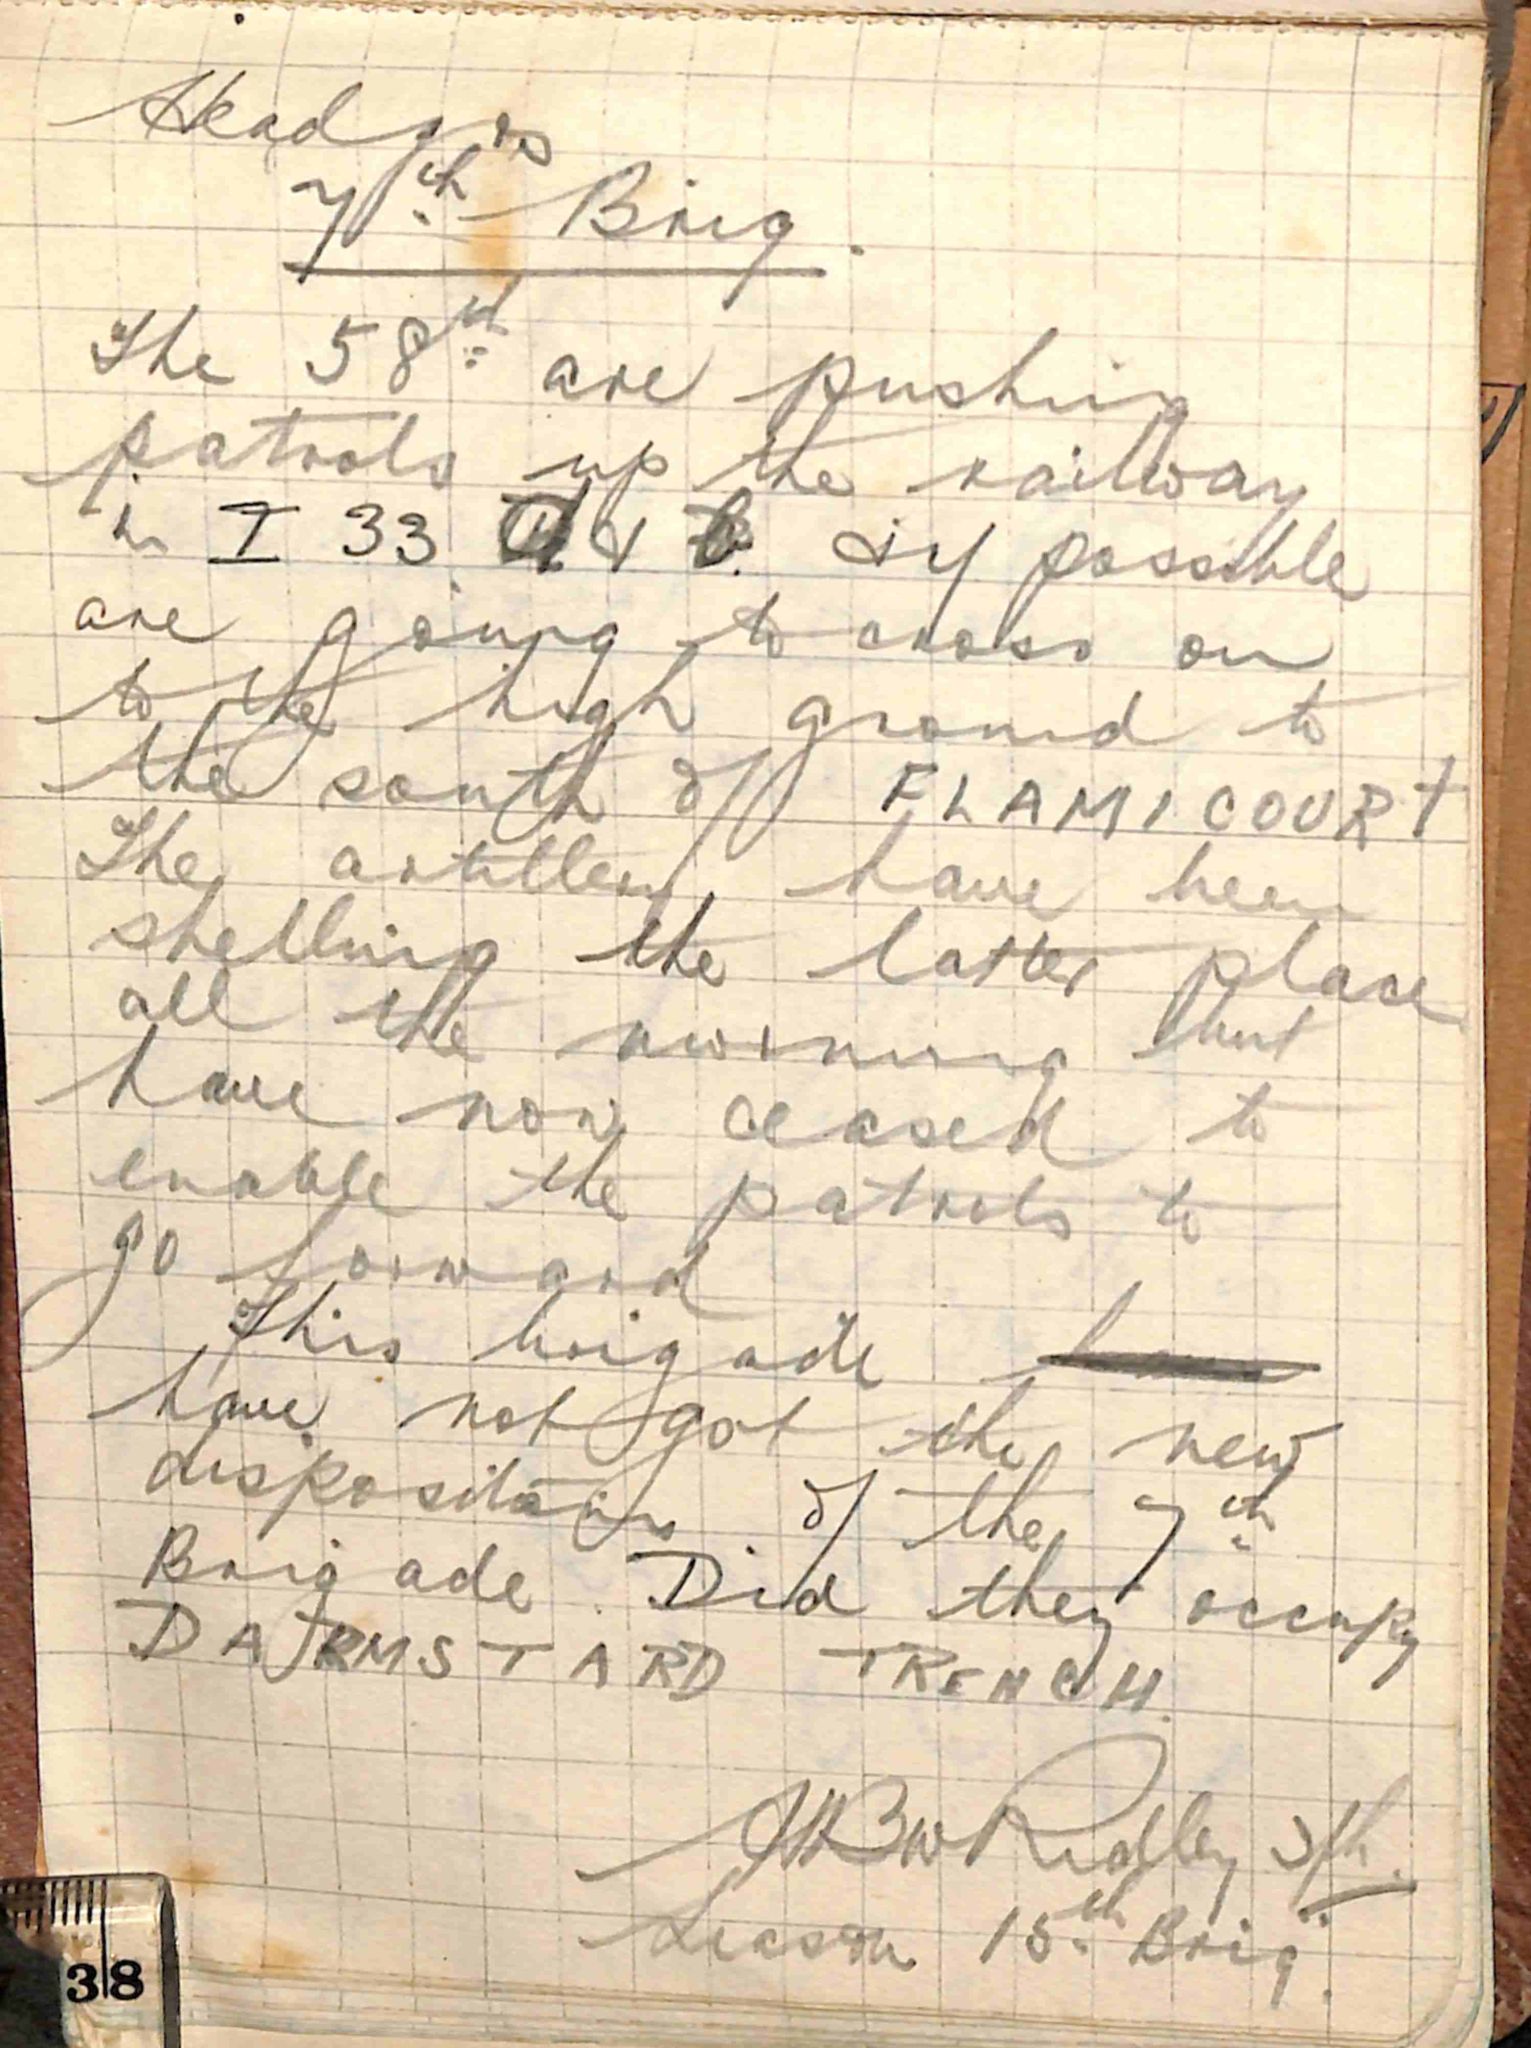 Head qrs
7th Brig.
The 58th are pushing
patrols up the railway
in I 33 d & b & if possible
are going to cross on
to the high ground to
the south of FLAMICOURT
The artillery have been
shelling the latter place
all the morning but
have now ceased to
enable the patrols to
go forward
This brigade
have not got the new
dispositions of the 7th
Brigade. Did they occupy
DARMSTARD TRENCH.
Ridley
Liason 15th Brig.
38